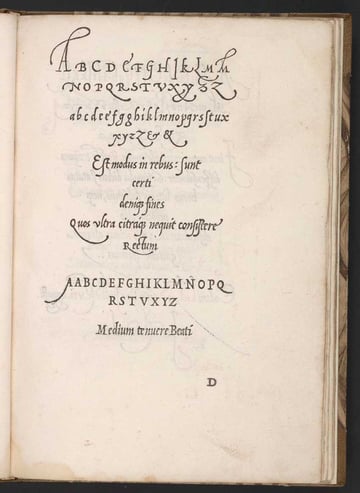 A B C D E F G H I K L M M
N O P Q R S T V X Y Z Z
a b c d e e f g g h i k l m n o p q r s s t u x
x y z Z & &
Est modus in rebus: sunt
certi
deniqȝ fines
Quos vltra citraqȝ nequit consistere
Rectum
A A B C D E F G H I K L M Ñ O P Q
R S T V X Y Z
Medium tenuere Beati
D